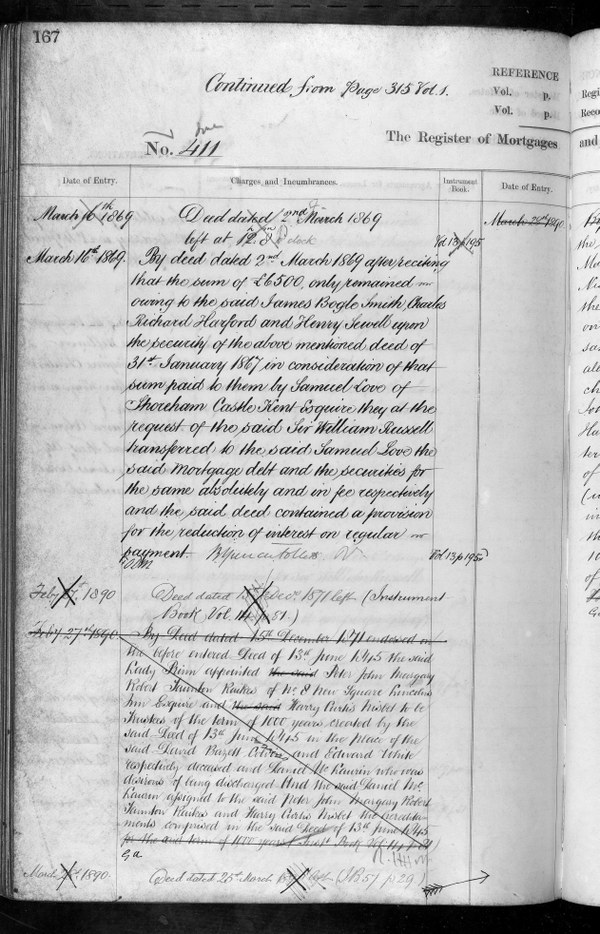 167
Continued from Page 315 Vol. 1.
REFERENCE
Vol. p.
Vol. p.
No. 411
The Register of Mortgages
and
Date of Entry.
Charges and Incumbrances.
Instrument Book.
Date of Entry.
March 16th 1869
Deed dated 2nd March 1869
March 26th 1890
left at 12. o'clock
Vol 13 p 195
March 16th 1869.
By deed dated 2nd March 1869 after reciting
that the sum of £6500, only remained
owing to the said James Bogle Smith, Charles
Richard Harford and Henry Sewell upon
the security of the above mentioned deed of
31st January 1867, in consideration of that
sum paid to them by Samuel Love of
Shoreham Castle Kent Esquire they at the
request of the said Sir William Russell
transferred to the said Samuel Love the
said Mortgage debt and the securities for
the same absolutely and in fee respectively
and the said deed contained a provision
for the reduction of interest on regular
payment
Vol 13 p 195
Feby 1890
Deed dated Decr. 1871 left (Instrument
Book, Vol. 14 p 81.)
Feby 27th 1890
By Deed dated 15th December 1871 endorsed on
the before entered Deed of 13th June 1845 the said
Lady Prinn appointed the said Peter John Margary
Robert Taunton Raikes of No 8 New Square Lincolns
Inn Esquire and the said Harry Curtis Nisbet to be
Trustees of the term of 1000 years, created by the
said Deed of 13th June 1845 in the place of the
said David Bazett and Edward White
respectively deceased and Daniel McKaurin who was
desirous of being discharged And the said Daniel Mc
Kaurin assigned to the said Peter John Margary Robert
Taunton Raikes and Harry Curtis Nisbet the heredita-
ments comprised in the said Deed of 13th June 1845
for the said term of 1000 years Book Vol 14 p 81
March 1890.
Deed dated 25th March left (I B 51 p 29)